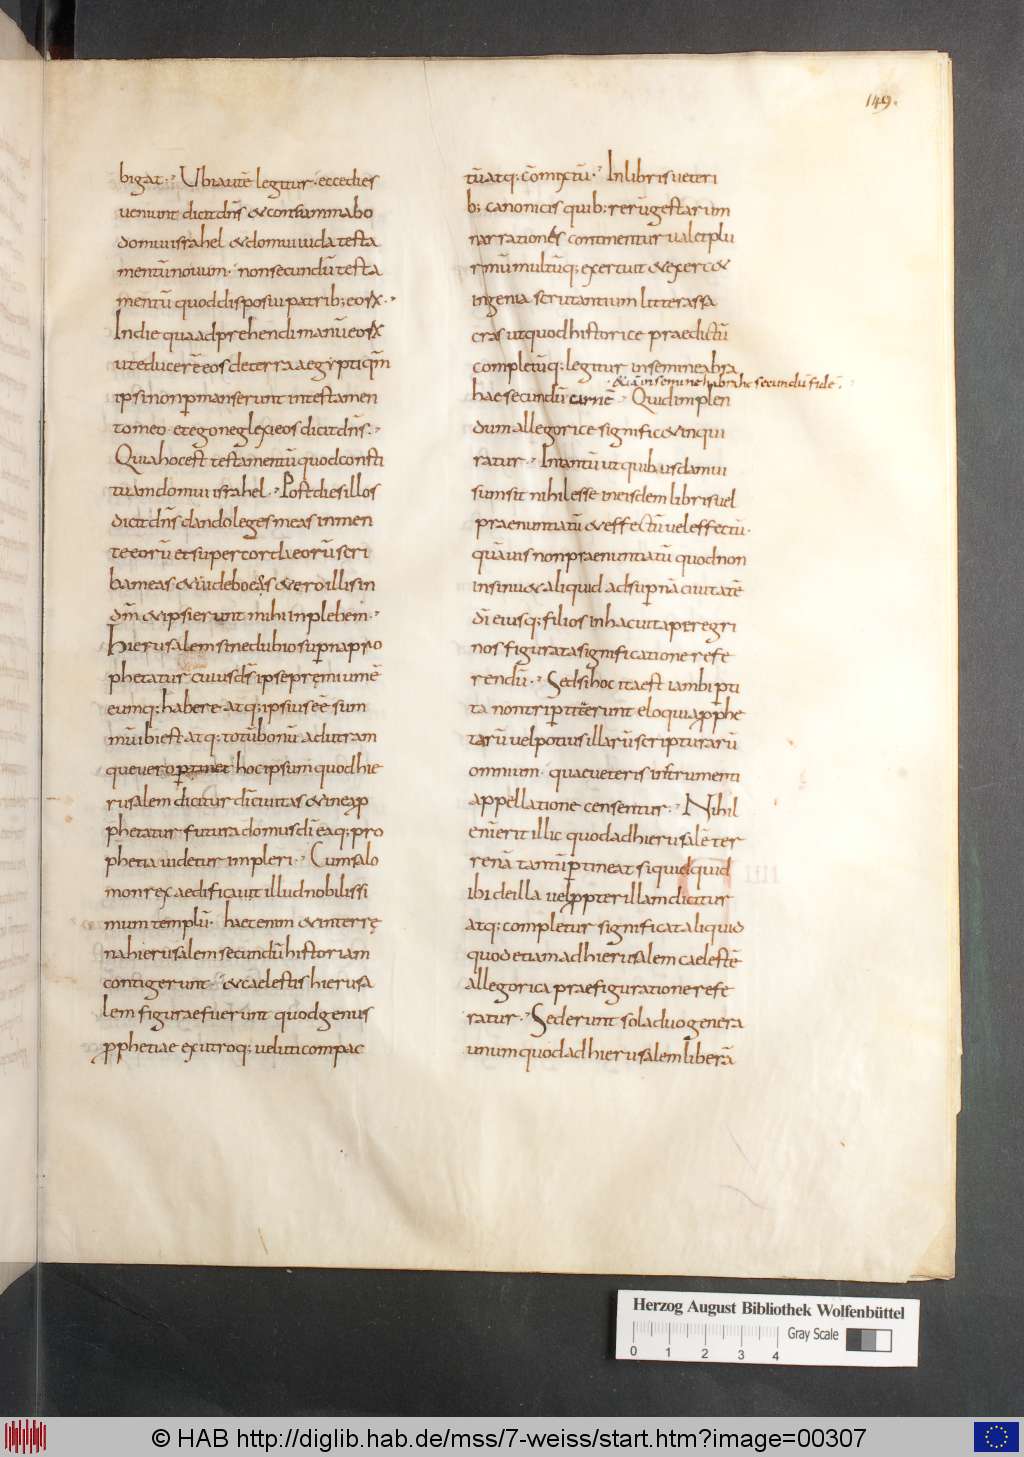 149.
bigat. Ubi autē legitur. ecce dies
ueniunt dicit dn̄s & consummabo
domui israhel & domui iuda testa
mentū nouum. non secundū testa
mentū quod disposui patrib; eorꝝ.
In die qua adprehendi manū eorꝝ
ut educerē eos de terra aegypti qm̄
ipsi non ꝑmanserunt in testamen
to meo. et ego neglexi eos dicit dn̄s.
Quia hoc est testamentū quod consti
tuam domui israhel. Post dies illos
dicit dn̄s dando leges meas in men
te eorū et super corda eorū scri
bam eas & uidebo eos & ero illis in
dm̄ & ipsi erunt mihi in plebem.
hierusalem sine dubio suꝑna pro
phetatur cuius ds̄ ipse pręmium ē
eumq; habere atq; ipsius eē sum
mū ibi est atq; totū bonū ad utram
que uero ꝑtinet hoc ipsum quod hie
rusalem dicitur dī ciuitas & in ea ꝓ
phetatur futura domus dī eaq; pro
phetia uidetur impleri. Cum salo
mon rex aedificauit illud nobilissi
mum templū. haec enim & in terrę
na hierusalem secundū historiam
contigerunt. & caelestis hierusa
lem figurae fuerunt quod genus
ꝓphetiae ex utroq; ueluti compac
tū atq; cōmixtū. In libris ueteri
b; canonicis quib; rerū gestarum
narrationes continentur ualet plu
rimū multūq; exercuit & exerc&
ingenia scrutantium litteras sa
cras ut quod historice praedictū
completūq; legitur in semine abra
. & iā in semine habrahe secundū fidē
hae secundū carnē. Quid implen
dum allegorice signific& inqui
ratur. In tantū ut quibusdam ui
sum sit nihil esse in eisdem libris uel
praenuntiatū & effectū uel effectū.
quāuis non praenuntiatū quod non
insinu& aliquid ad suꝑnā ciuitatē
dī eiusq; filios in hac uita peregri
nos figurata significatione refe
rendū. Sed si hoc ita est iam biꝑti
ta non triꝑtita erunt eloquia ꝓphe
tarū uel potius illarū scripturarū
omnium. quae ueteris instrumenti
appellatione censentur. Nihil
enī erit illic quod ad hierusalē ter
renā tantū ꝑtineat si quidquid
ibi de illa uel ꝓpter illam dicitur
atq; completur significat aliquid
quod etiam ad hierusalem caelestē
allegorica praefiguratione refe
ratur. Sed erunt sola duo genera
unum quod ad hierusalem liberā
Herzog August Bibliothek Wolfenbüttel
Gray Scale
0 1 2 3 4
© HAB http://diglib.hab.de/mss/7-weiss/start.htm?image=00307